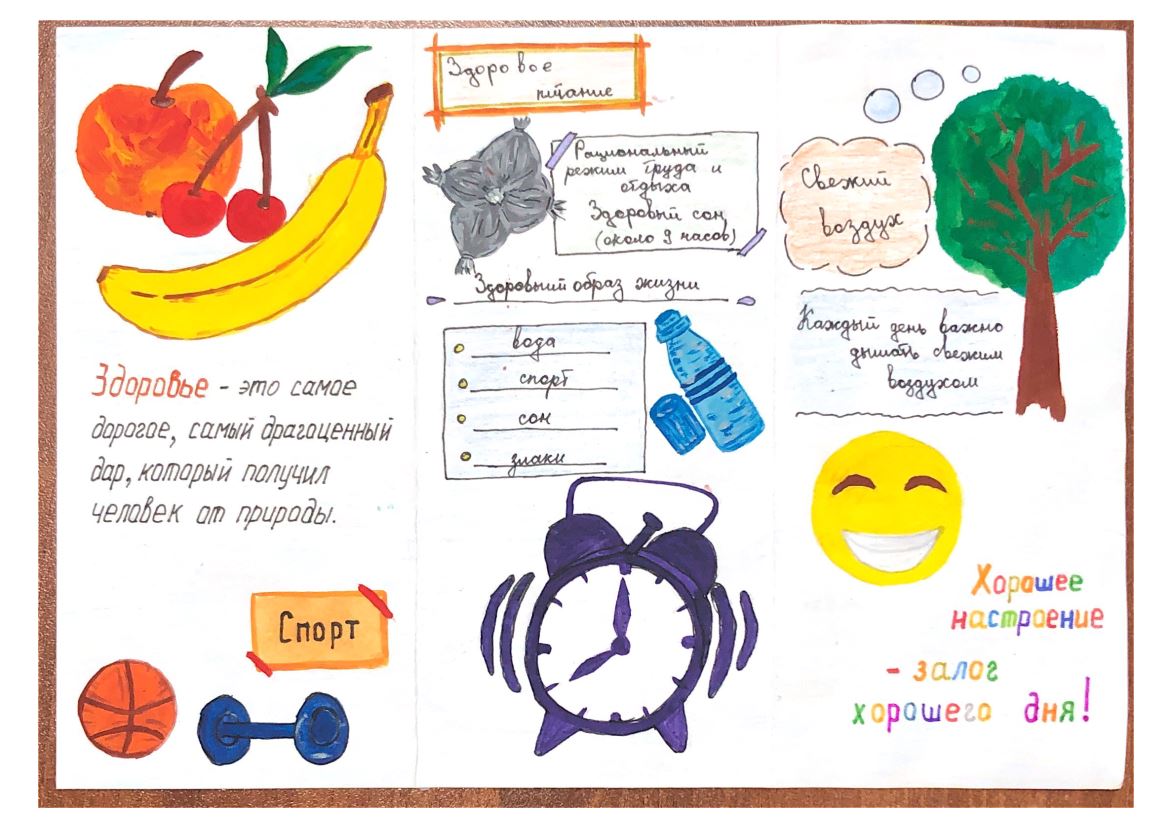 Здоровье - это самое
дорогое, самый драгоценный
дар, который получил
человек от природы.
Спорт
Здоровое
питание
Рациональный
режим труда и
отдыха
Здоровый сон
(около 9 часов)
Здоровый образ жизни
вода
спорт
сон
злаки
Свежий
воздух
Каждый день важно
дышать свежим
воздухом
Хорошее
настроение
- залог
хорошего дня!